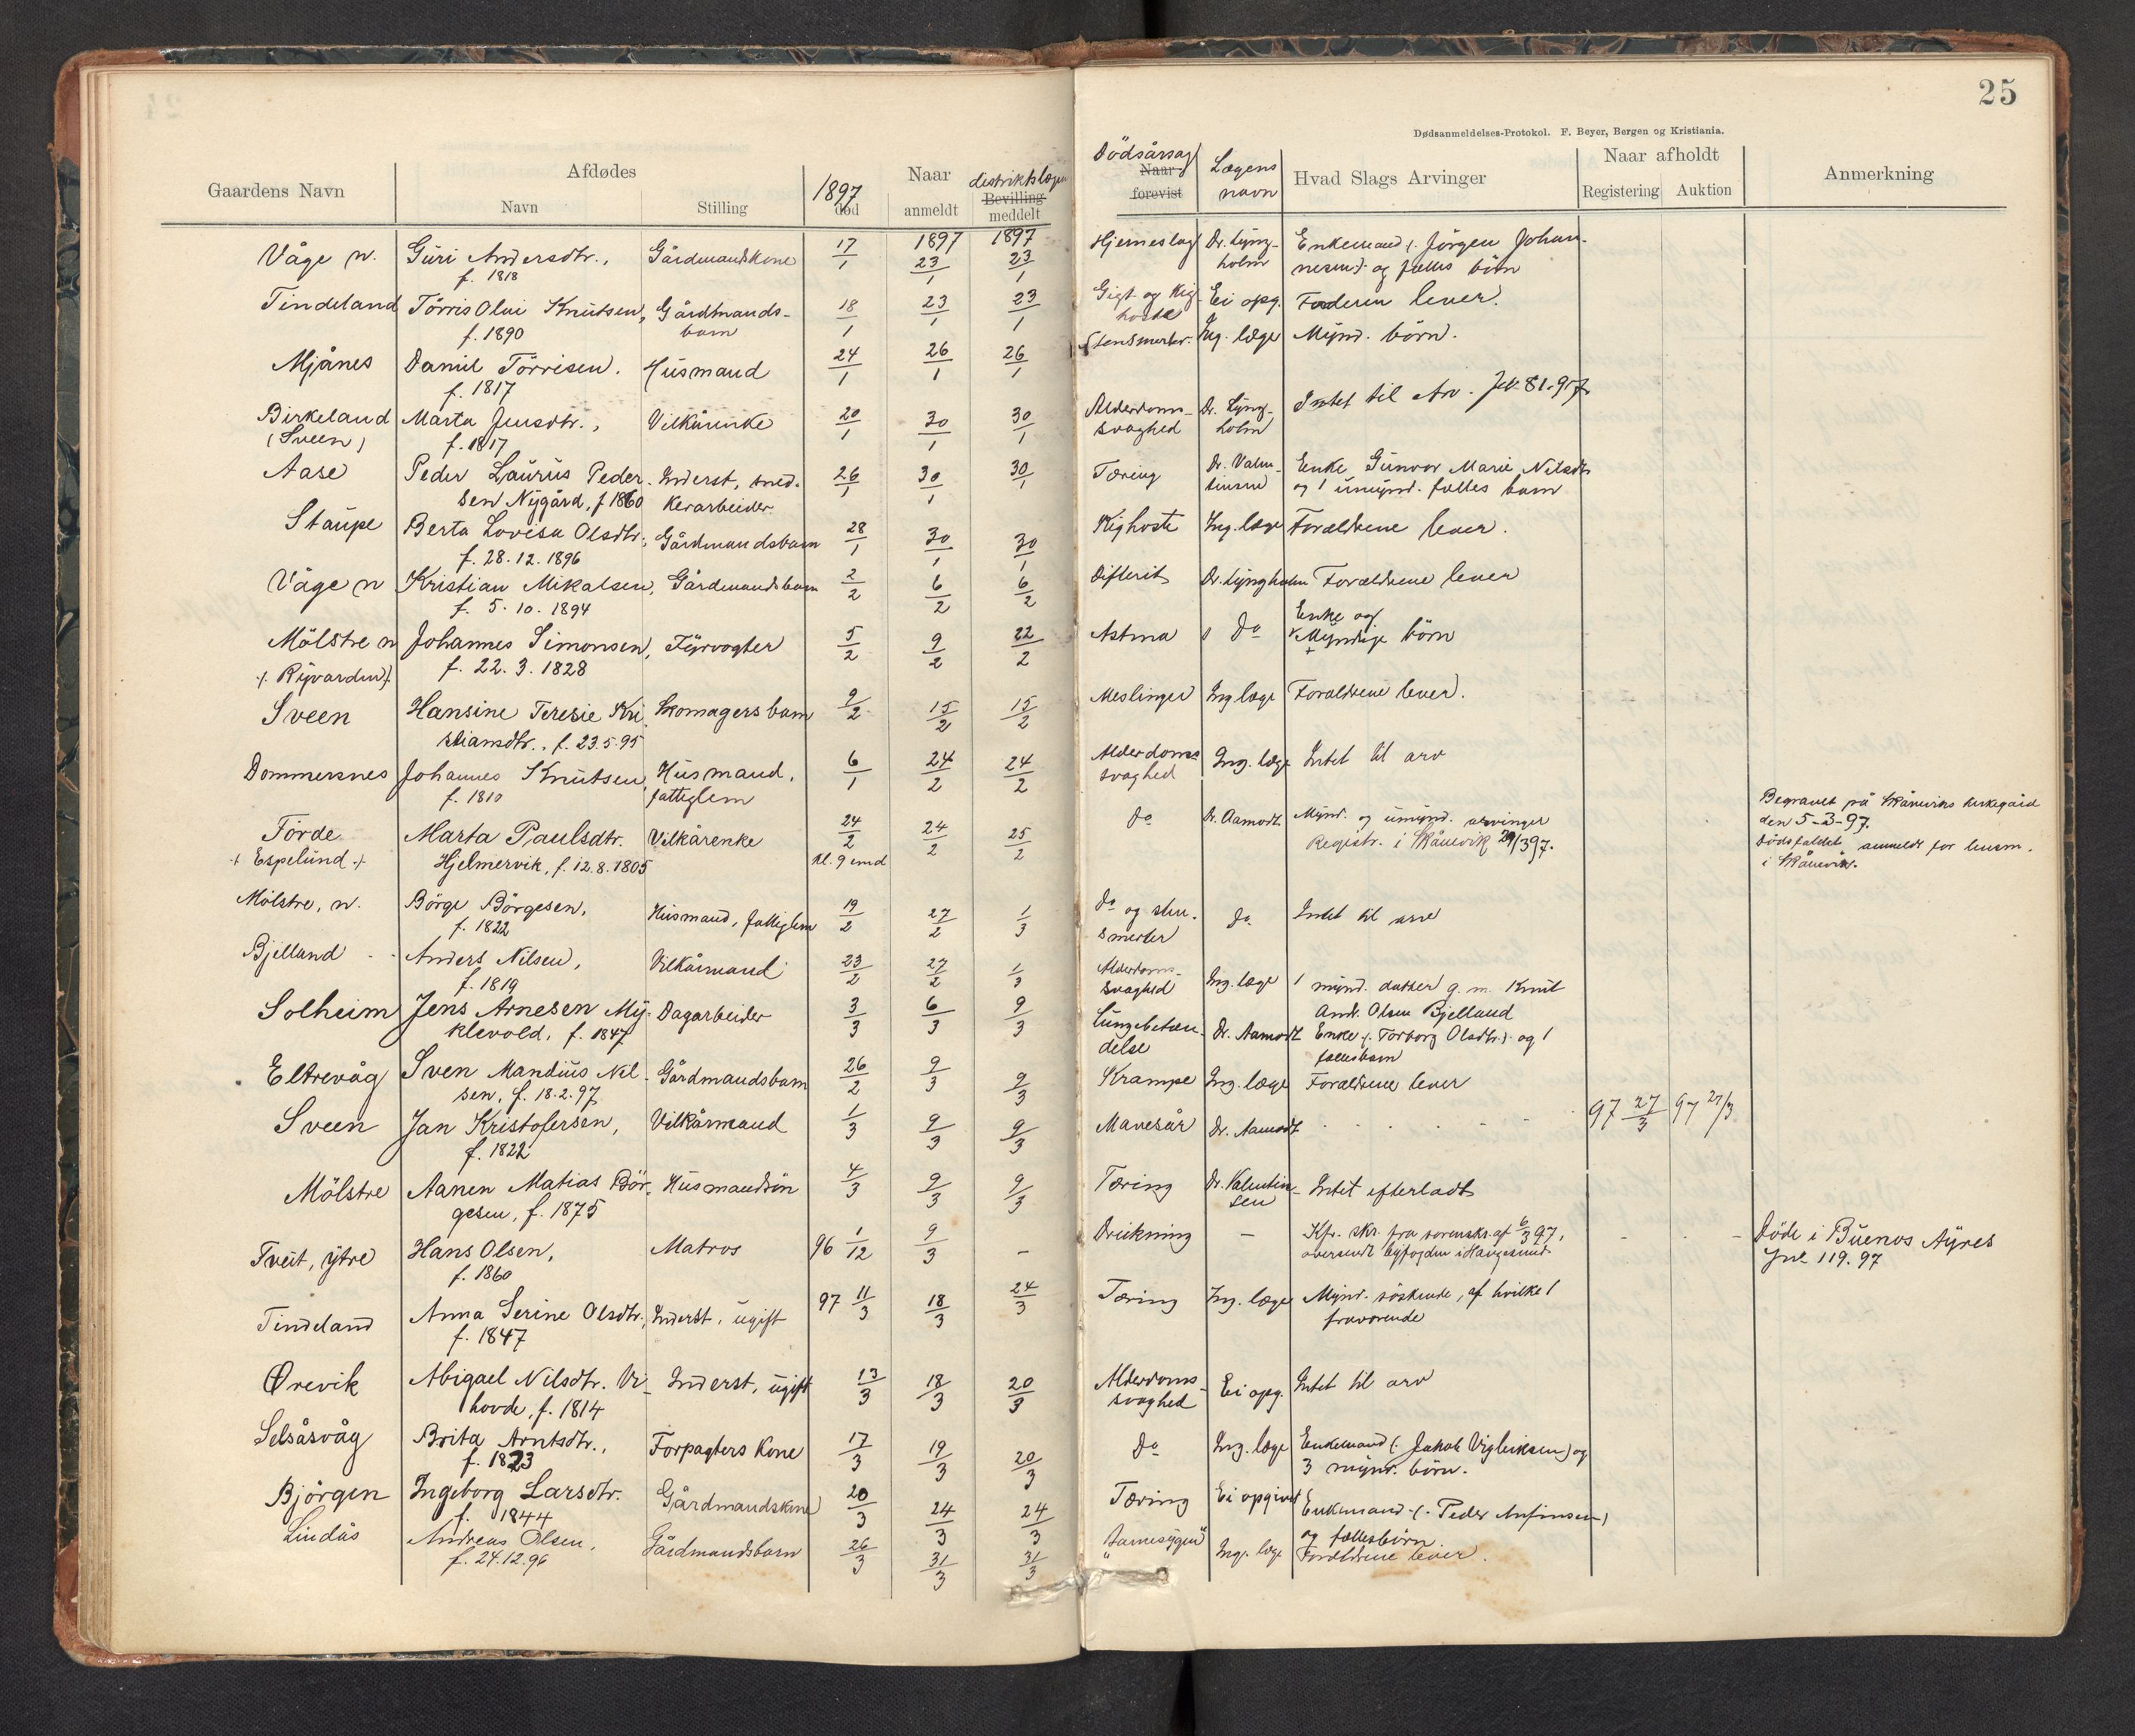 25
Dødsanmeldelses-Protokol. F. Beyer, Bergen og Kristiania.
Gaardens Navn
Afdødes
Navn
Stilling
1897
død
Naar
anmeldt
distriktslægen
Bevilling
meddelt
Dödsårsag
Naar
forevist
Lægens
navn
Hvad Slags Arvinger
Naar afholdt
Registering
Auktion
Anmerkning
1897 1897
Våge n. Gúri Andersdtr., Gårdmandskone 17/1 23/1 23/1 Hjerneslag Dr. Lyng- Enkemand (: Jörgen Johan-
f. 1818 holm nesen :) og fælles börn
Tindeland Törris Olai Knútsen, Gårdmands- 18/1 23/1 23/1 Gigt og Kig- Ei opg. Faderen lever.
f. 1890 barn hoste
Mjånes Daniel Törrisen. Húsmand 24/1 26/1 26/1 Stensmerter Ing. læge Mynd. börn.
f. 1817
Birkeland Marta Jensdtr., Vilkårenke 20/1 30/1 30/1 Alderdoms- Dr. Lyng- Intet til Arv. Jr. 81-97
(Sveen) f. 1817 svaghed holm
Aase Peder Laurús Peder- Inderst, sned- 26/1 30/1 30/1 Tæring Dr. Valen- Enke Gúnvor Marie Nilsdtr
sen Nygård, f 1860 kerarbeider tinsen og 1 úmynd. fælles barn
Staúpe Berta Lovisa Olsdtr., Gårdmandsbarn 28/1 30/1 30/1 Kighoste Ing. læge Forældrene lever.
f. 28.12.1896
Våge n Kristian Mikalsen, Gårdmandsbarn 2/2 6/2 6/2 Difterit Dr. Lyngholm Forældrene lever
f. 5.10.1894
Mölstre n Johannes Simonsen, Fyrvogter 5/2 9/2 22/2 Astma do Enke og
(: Ryvarden :) f. 22.3.1828 Myndige börn
Sveen Hansine Teresie Kri- Skomagersbarn 9/2 15/2 15/2 Meslinger Ing læge Forældrene lever.
stiansdtr., f. 23.5.95
Dommersnes Johannes Knútsen Húsmand, 6/1 24/2 24/2 Alderdoms- Ing. læge Intet til arv
f. 1810 fattiglem svaghed
Förde Marta Paulsdtr. Vilkårenke 24/2 24/2 25/2 do Dr. Aamodt Mynd. og úmynd. arvinger Begravet på Skåneviks kirkegård
(: Espelúnd :) Hjelmervik, f. 12.8.1805 Kl. 9 emd Registr. i Skånevik 29/3 97. den 5-3-97.
Dödsfaldet anmeldt for lensm.
i Skånevik.
Mölstre, n. Börge Börgesen, Húsmand, fattiglem 19/2 27/2 1/3 do og sten- do Intet til arv
f. 1822 smerter
Bjelland Anders Nilsen, Vilkårmand 23/2 27/2 1/3 Alderdoms- Ing. læge 1 mynd. datter g. m. Knút
f. 1819 svaghed And. Olsen Bjelland
Solheim Jens Arnesen My- Dagarbeider 3/3 6/3 9/3 Lúngebetæn- Dr. Aamodt Enke (: Torborg Olsdtr :) og 1
klevold, f. 1847 delse fællesbarn
Eltrevåg Sven Mandiús Nil- Gårdmandsbarn 26/2 9/3 9/3 Krampe Ing. læge Forældrene lever
sen, f. 18.2.97
Sveen Jan Kristofersen, Vilkårmand 1/3 9/3 9/3 Mavesår Dr. Aamodt 97 27/3 97 27/3
f. 1822
Mölstre Aanen Matias Bör- Húsmandsön 4/3 9/3 9/3 Tæring Dr. Valentin- Intet efterladt
gesen, f. 1875 sen
Tveit, ytre Hans Olsen, Matros 96 1/12 9/3 - Drúkning - Kfr. skr. fra sorenskr. af 6/3 97, Döde i Búenos Ayres
f. 1860 oversendt byfogden i Haúgesúnd. Jnl. 119.97
Tindeland Anna Serine Olsdtr, Inderst, úgift 97 11/3 18/3 24/3 Tæring Ing. læge Mynd. söskende, af hvilke 1
f. 1847 fraværende
Ørevik Abigael Nilsdtr. Vi- Inderst, úgift 13/3 18/3 20/3 Alderdoms- Ei opg. Intet til arv
hovde, f. 1814 svaghed
Selsåsvåg Brita Arntsdtr., Forpagters kone 17/3 19/3 20/3 do Ing. læge Enkemand (: Jakob Vigleiksen) og
f. 1823 3 mynd. börn.
Björgen Ingeborg Larsdtr. Gårdmandskone 20/3 24/3 24/3 Tæring Ei opgivet Enkemand (: Peder Anfinsen)
f. 1844 og fællesbörn
Lindås Andreas Olsen, Gårdmandsbarn 26/3 31/3 31/3 "Barnesygen" Ing. læge Forældrene lever.
f. 24.12.96